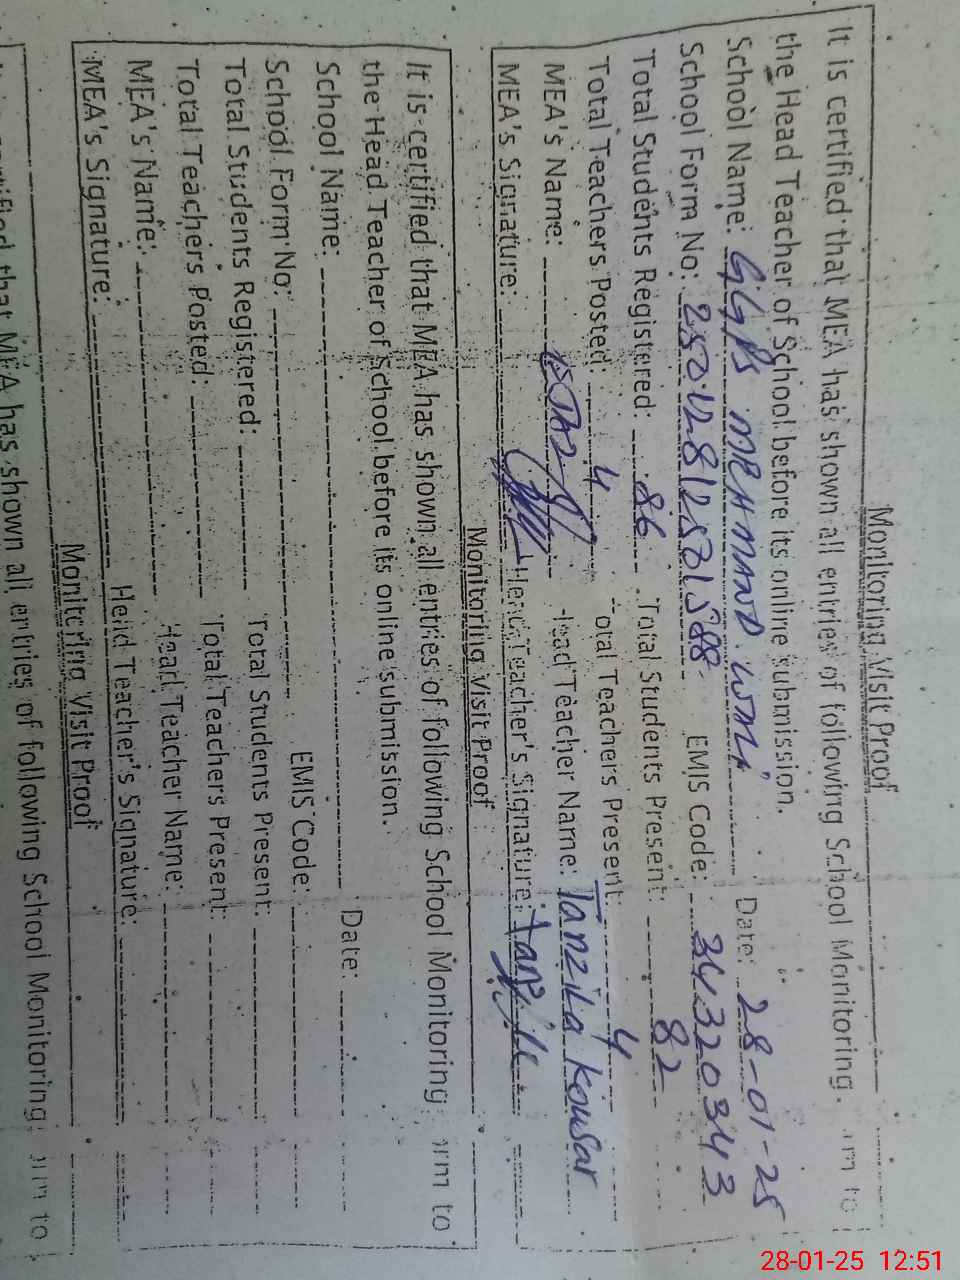 Monitoring Visit Proof
It is certified that MEA has shown all entries of following School Monitoring to
the Head Teacher of School before its online submission.
School Name: GGPS Date: 28-01-25
School Form No: EMIS Code: 34320343
Total Students Registered: 86 Total Students Present: 82
Total Teachers Posted: 4 Total Teachers Present: 4
MEA's Name: Head Teacher Name: Tanzila kousar
MEA's Signature: Head Teacher's Signature:
Monitoring Visit Proof
It is certified that MEA has shown all entries of following School Monitoring to
the Head Teacher of School before its online submission.
School Name: Date:
School Form No: EMIS Code:
Total Students Registered: Total Students Present:
Total Teachers Posted: Total Teachers Present:
MEA's Name: Head Teacher Name:
MEA's Signature: Head Teacher's Signature:
Monitoring Visit Proof
that MEA has shown all entries of following School Monitoring to
28-01-25 12:51